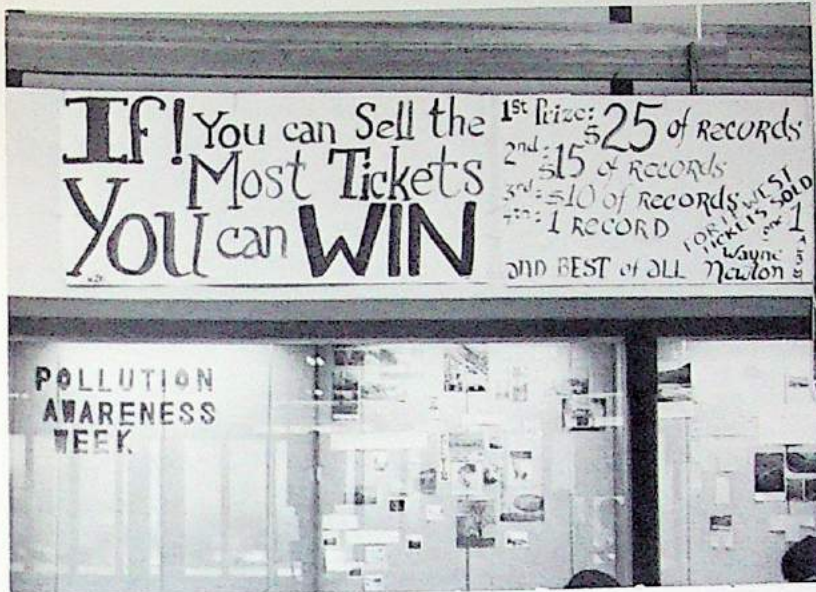 If! You can Sell the
Most Tickets
You can WIN
1st Prize: $25 of RECORDS
2nd: $15 of RECORDS
3rd: $10 of RECORDS
1 RECORD
AND BEST of ALL
FOR FEWEST
TICKETS SOLD
one 1
Wayne
Newton
POLLUTION
AWARENESS
WEEK